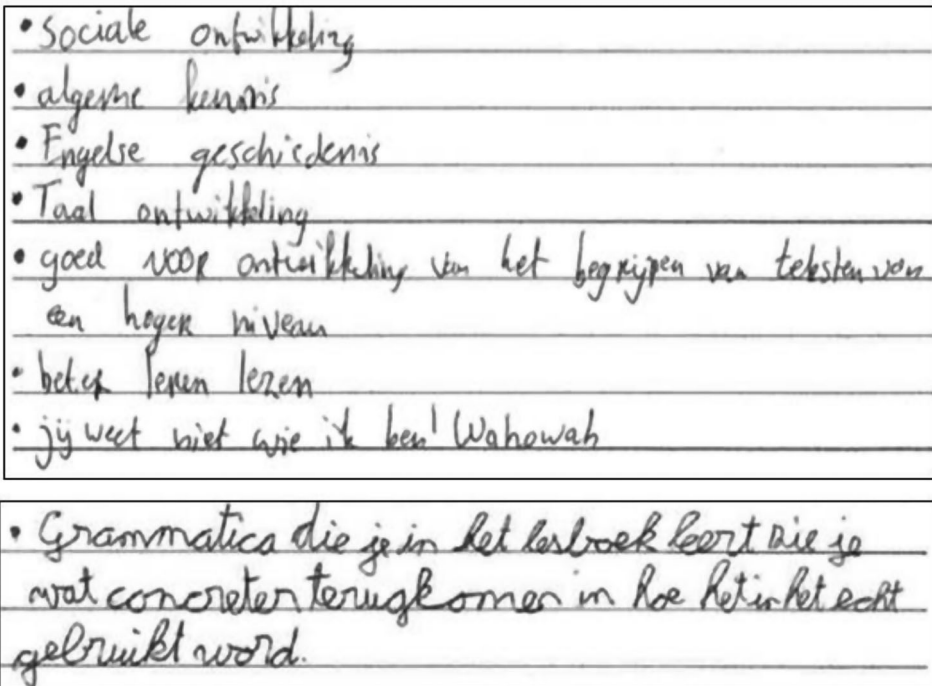 • Sociale ontwikkeling
• algemne kennis
• Engelse geschiedenis
• Taal ontwikkeling
• goed voor ontwikkeling van het begrijpen van teksten van
een hoger niveau
• beter leren lezen
• jij weet niet wie ik ben! Wahowah
• Grammatica die je in het lesboek leert zie je
wat concreter terugkomen in hoe het in het echt
gebruikt word.